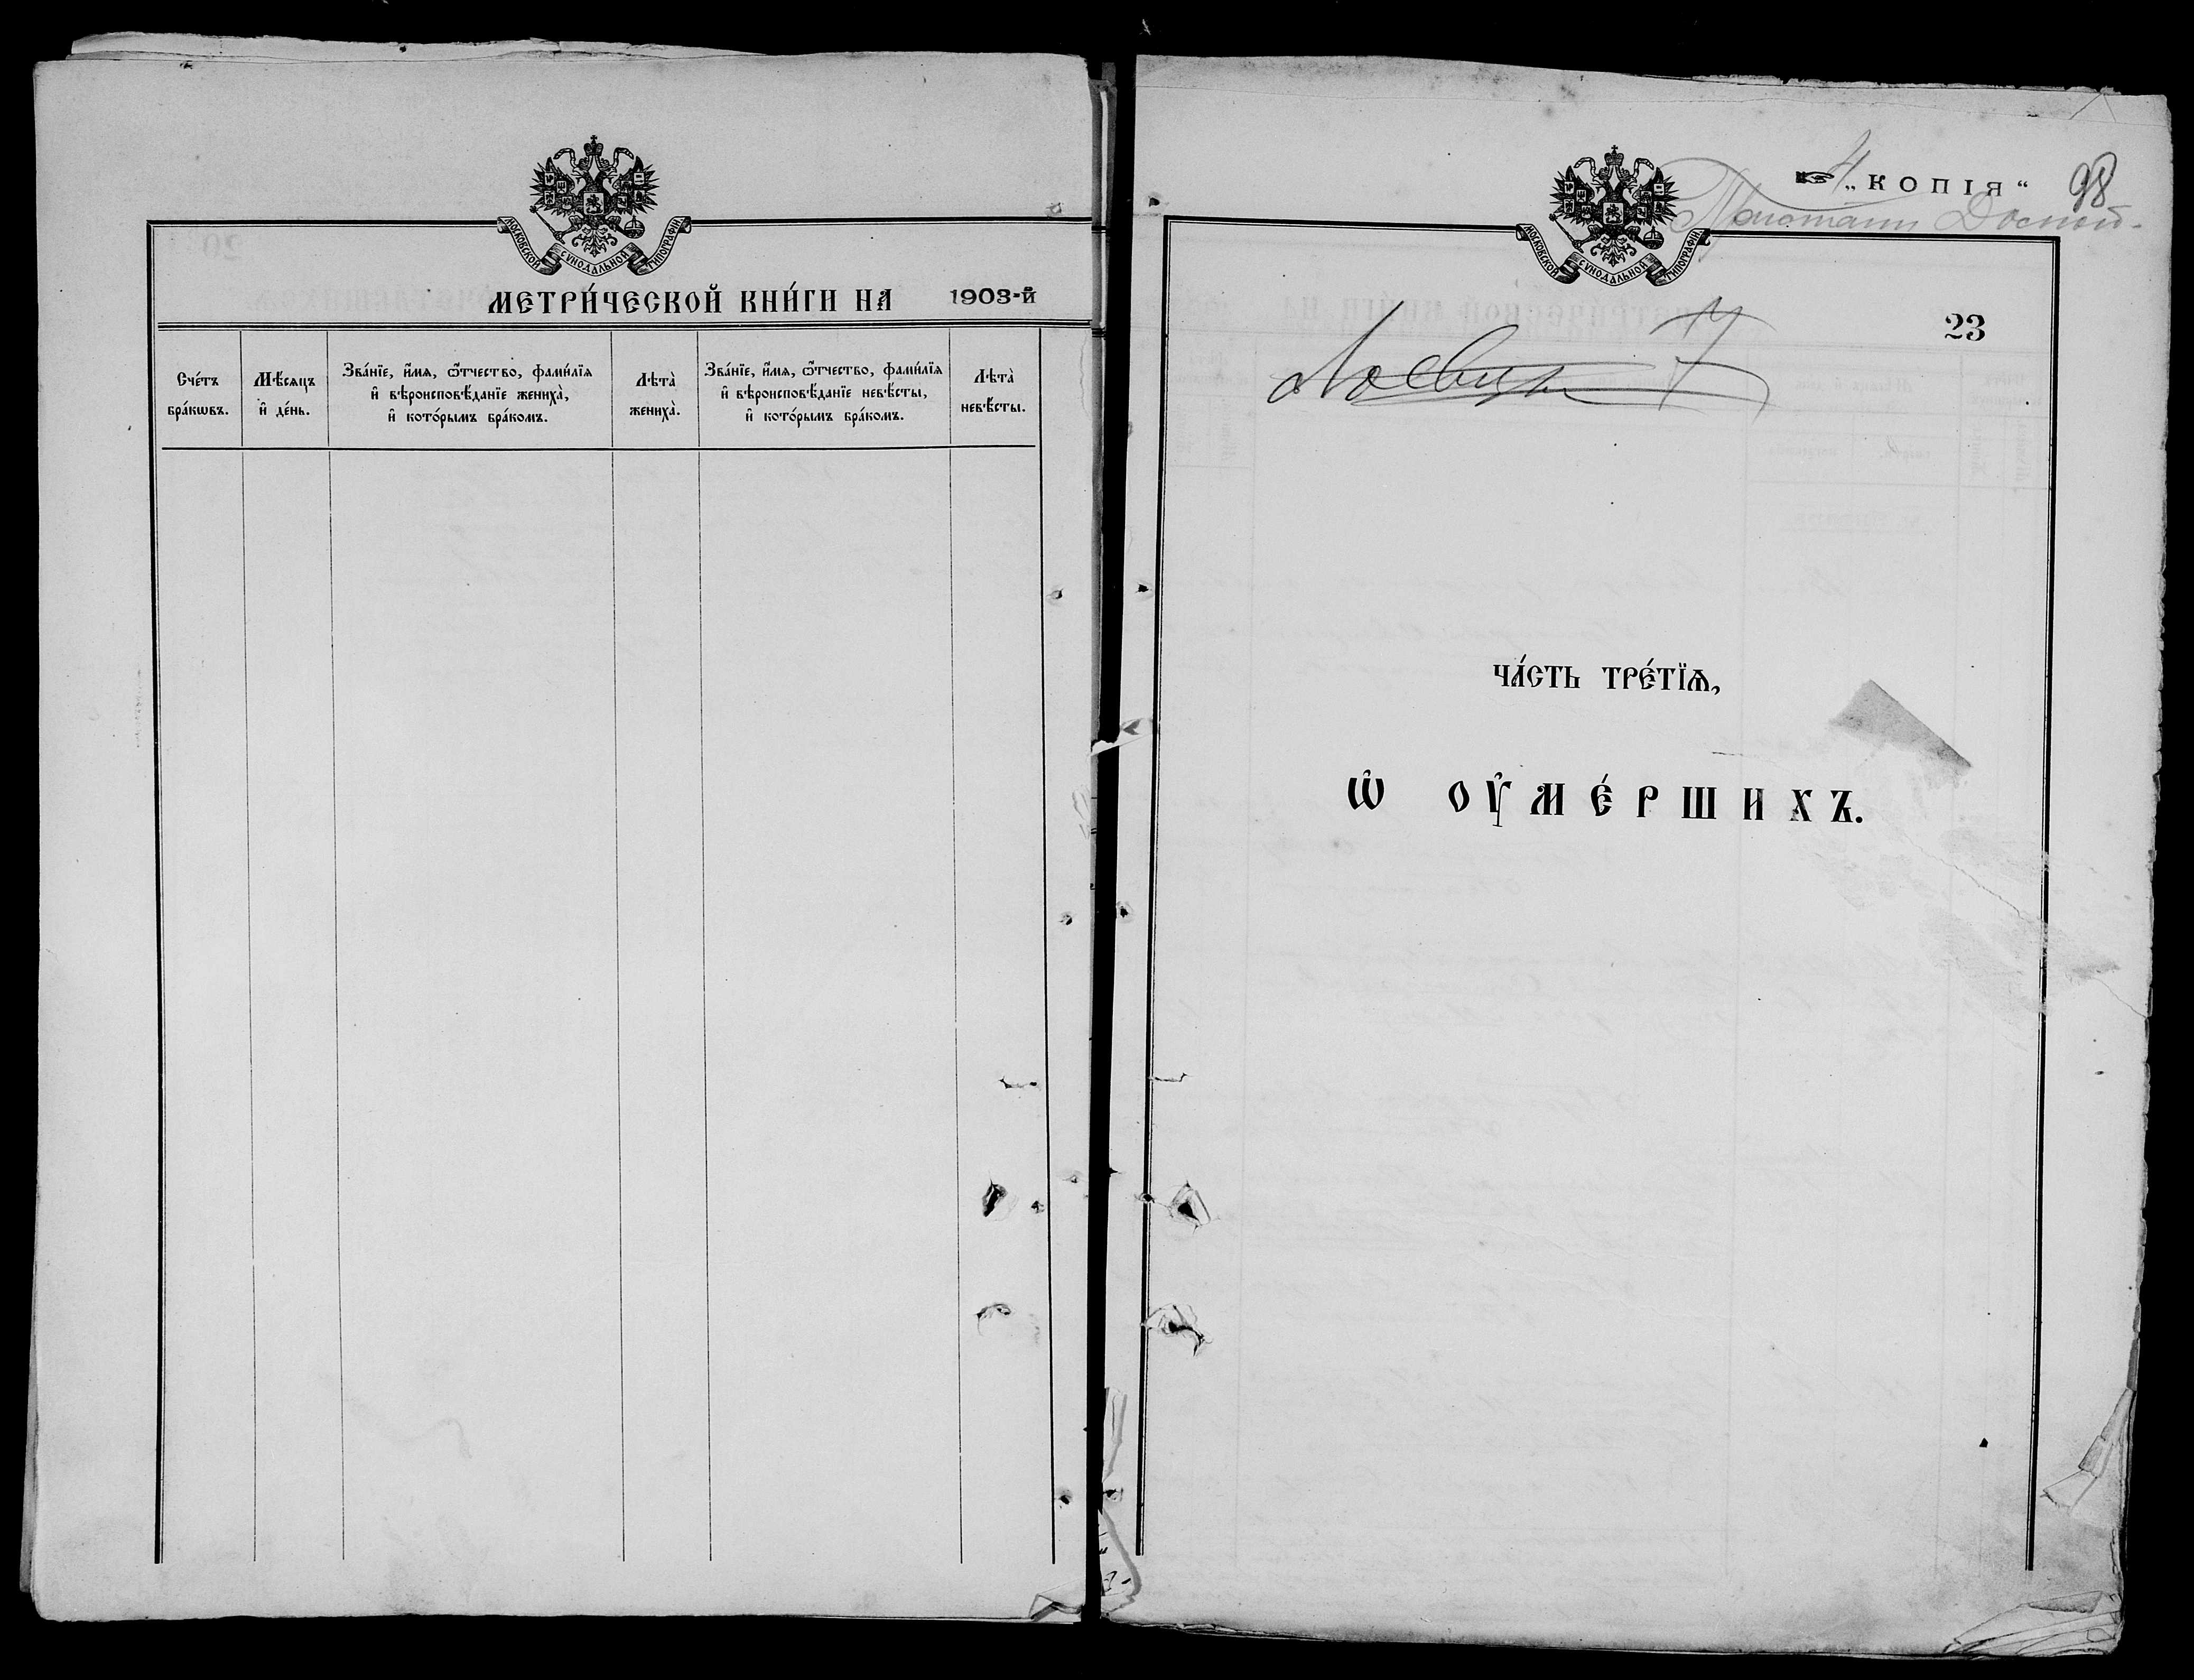 МОСКОВСКОЙ СѴНОДАЛЬНОЙ ТИПОГРАФІИ.
МЕТРИ́ЧЕСКОЙ КНИ́ГИ НА 1903-й
Сче́тъ бра́кѡвъ.
Мѣ́сяцъ и҆ де́нь.
Зва́нїе, и҆́мя, ѻ҆́тчество, фами́лїя
и҆ вѣроисповѣ́данїе жениха̀,
и҆ кото́рымъ бра́комъ.
Лѣта̀ жениха̀.
Зва́нїе, и҆́мя, ѻ҆́тчество, фами́лїя
и҆ вѣроисповѣ́данїе невѣ́сты,
и҆ кото́рымъ бра́комъ.
Лѣта̀ невѣ́сты.
„КОПІЯ“ 98
МОСКОВСКОЙ СѴНОДАЛЬНОЙ ТИПОГРАФІИ.
23
ЧА́СТЬ ТРЕ́ТЇѦ,
Ѡ҆ ОУ҆МЕ́РШИХЪ.